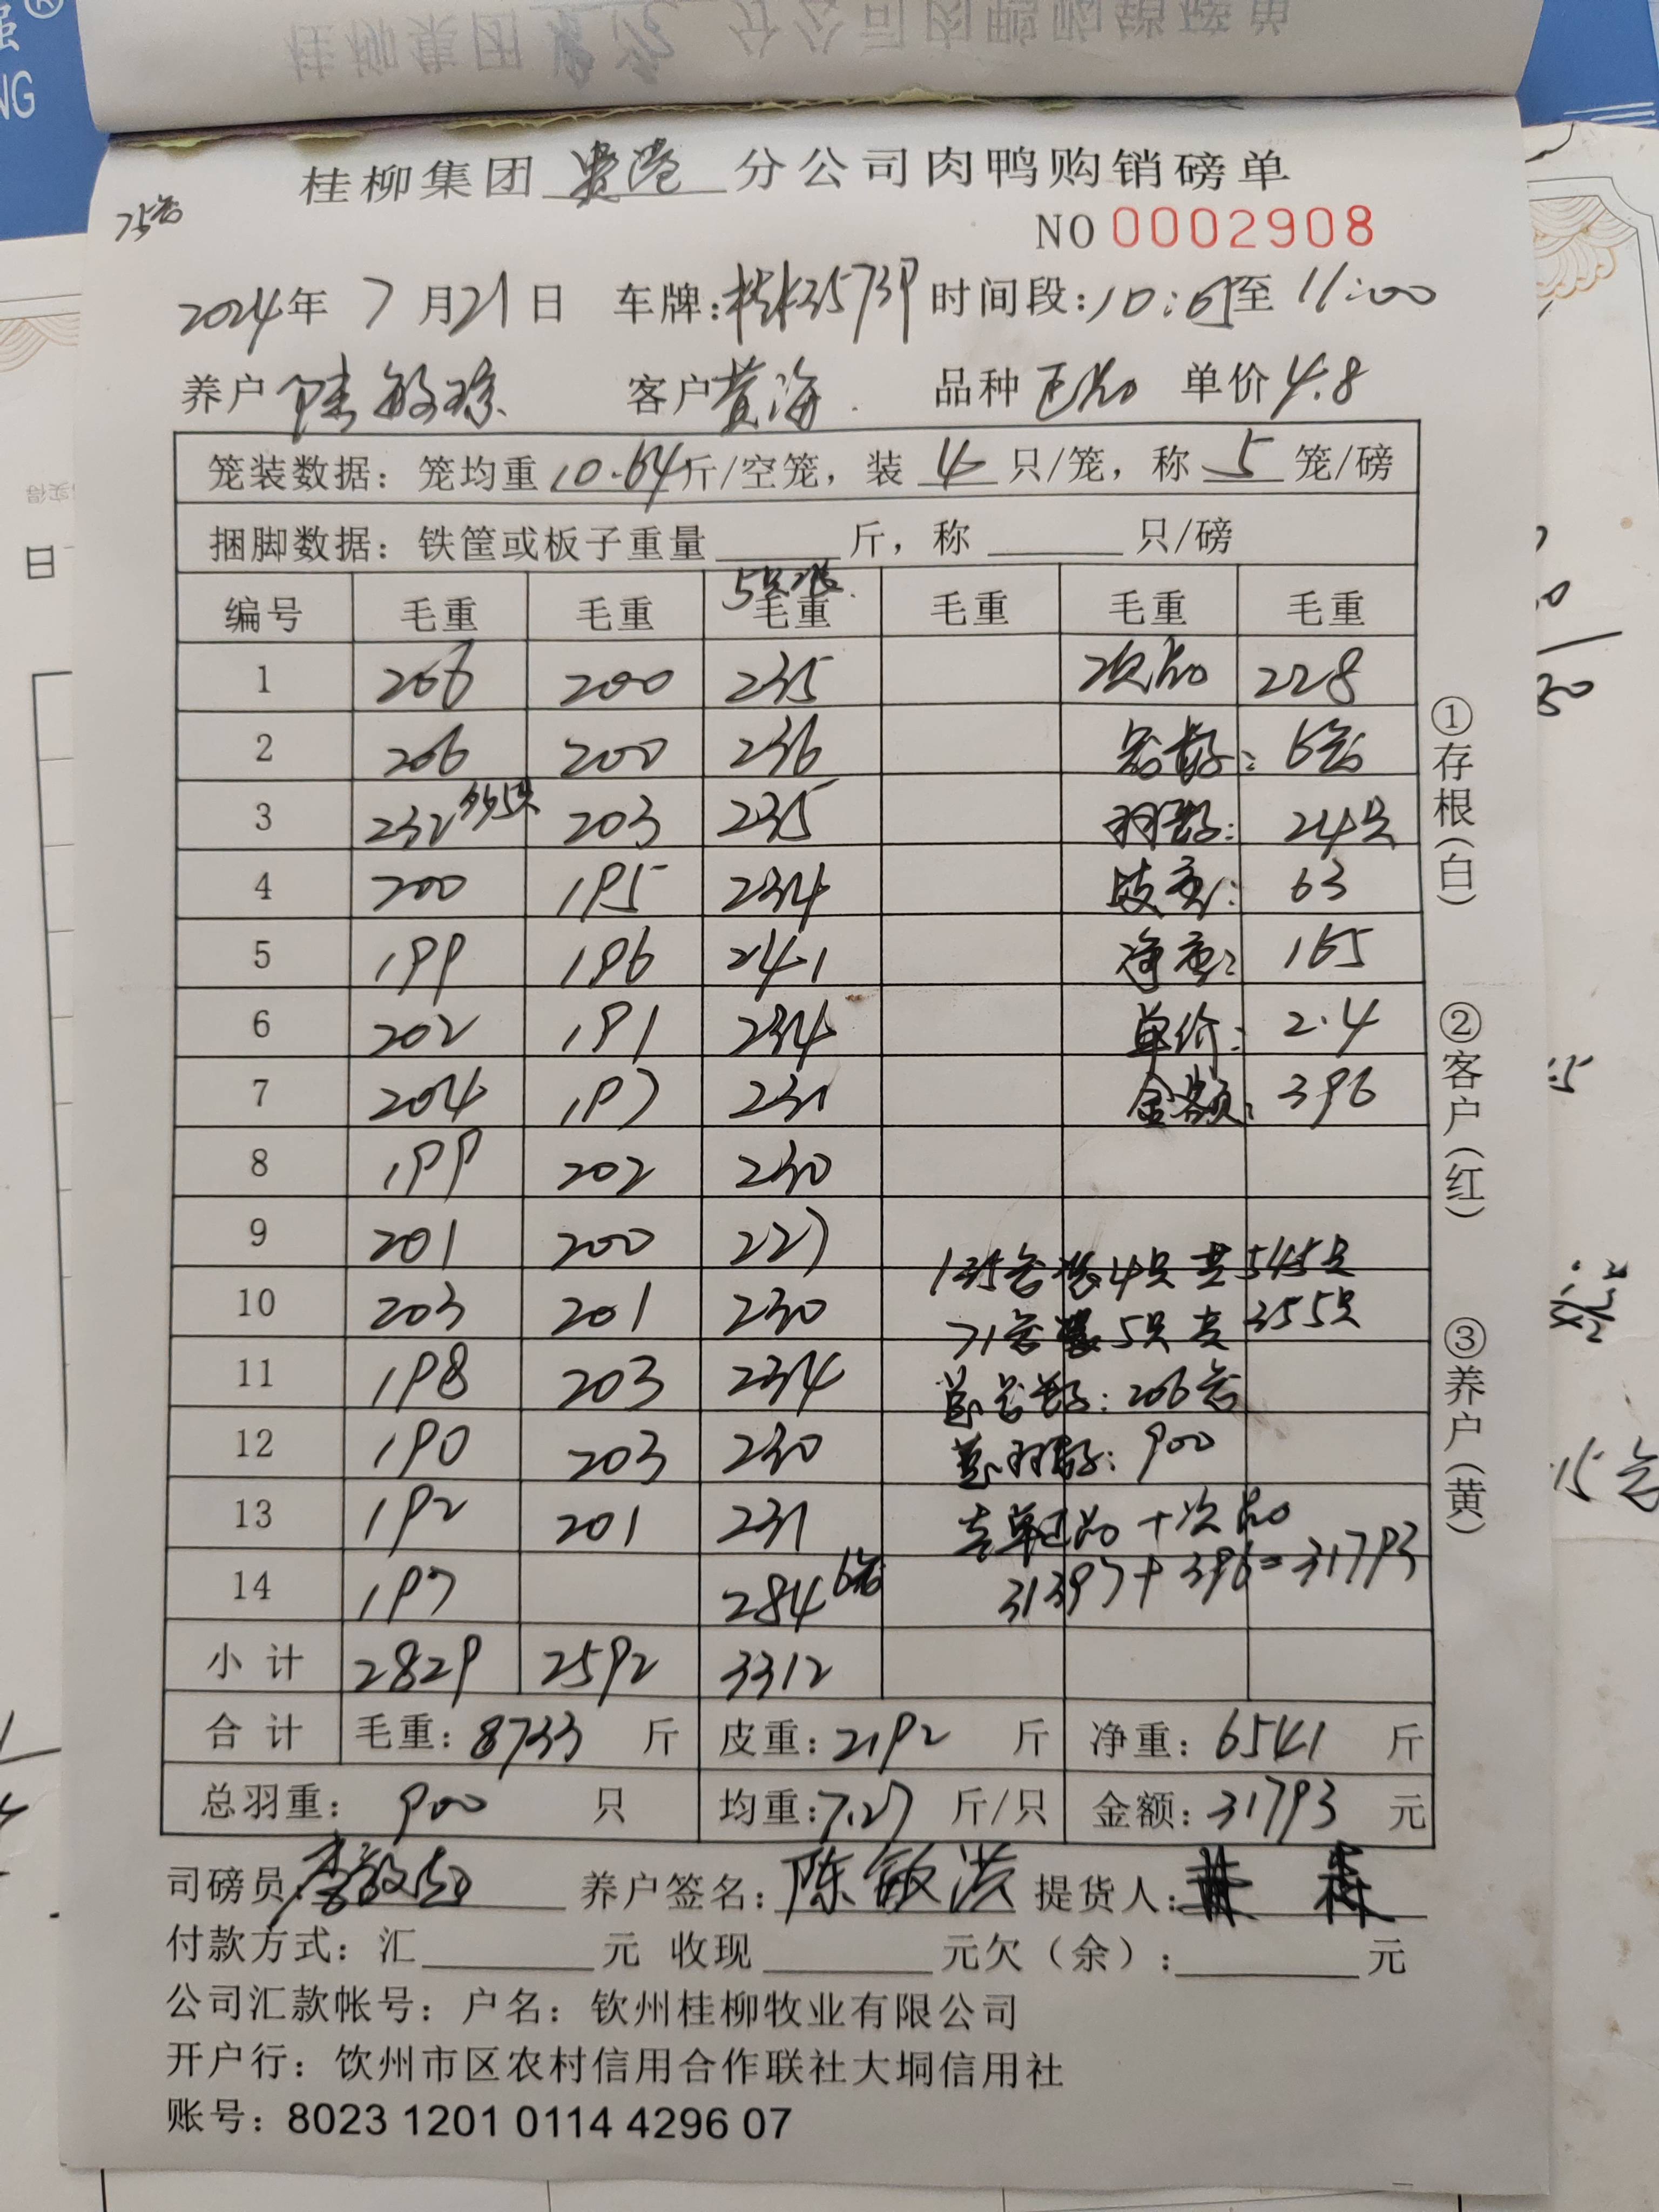 桂柳集团 贵港 分公司肉鸭购销磅单
75笼
NO 0002908
2024年 7月21日 车牌: 时间段:10: 至 11:00
养户 陈敏 客户 黄海 品种 正品 单价 4.8
笼装数据：笼均重 10.64 斤/空笼，装 4 只/笼，称 5 笼/磅
捆脚数据：铁筐或板子重量 斤，称 只/磅
5只装
编号 毛重 毛重 毛重 毛重 毛重 毛重
1 206 200 235 次品 228
2 206 200 236 笼数: 6笼
3 232 203 235 羽数: 24只
4 200 195 234 皮重: 63
5 199 196 241 净重: 165
6 202 191 234 单价: 2.4
7 204 197 231 金额: 396
8 199 202 230
9 201 200 227
135笼装4只 共545只
10 203 201 230
71笼装5只 共355只
11 198 203 234 总笼数: 206笼
12 190 203 230 总羽数: 900
13 192 201 231 去单正品+次品
14 197 284 6笼 31397+396=31793
小计 2829 2592 3312
合计 毛重: 8733 斤 皮重: 2192 斤 净重: 6541 斤
总羽重: 900 只 均重: 7.27 斤/只 金额: 31793 元
司磅员: 养户签名: 陈敏洪 提货人:
付款方式：汇 元 收现 元欠（余）: 元
公司汇款帐号：户名：钦州桂柳牧业有限公司
开户行：饮州市区农村信用合作联社大垌信用社
账号：8023 1201 0114 4296 07
①存根(白)
②客户(红)
③养户(黄)